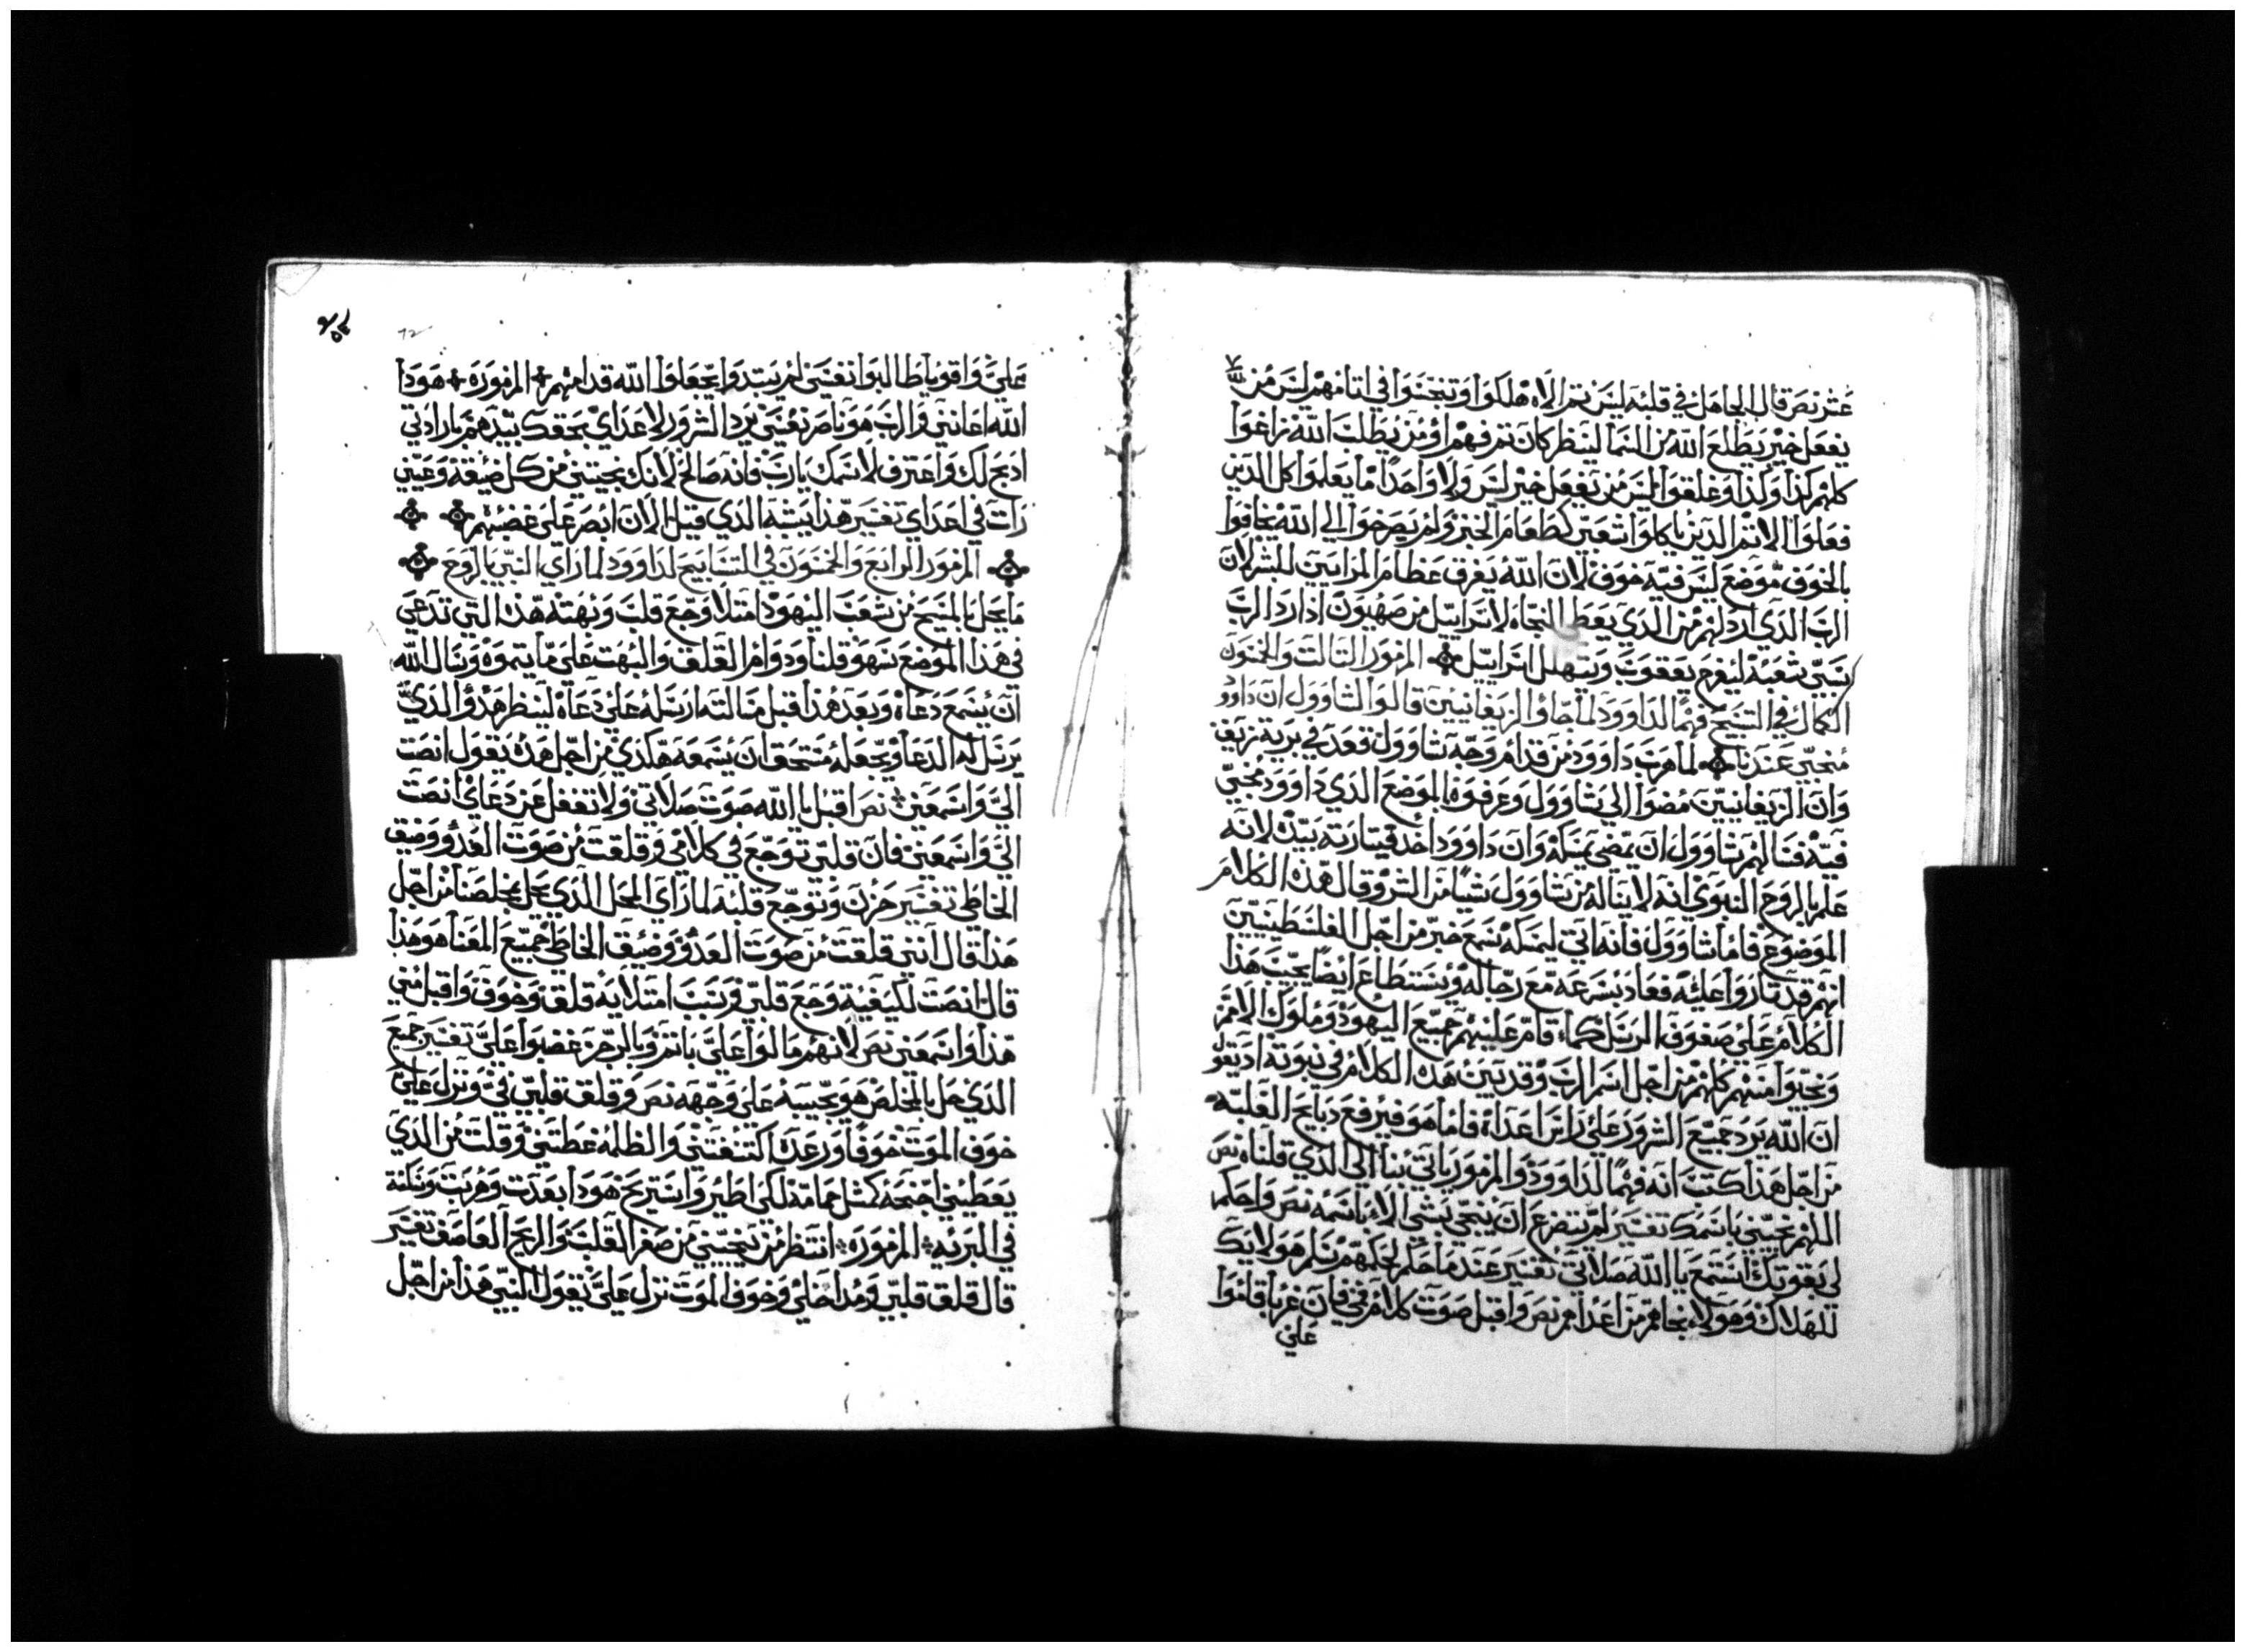 عشر نص قال الجاهل في قلبه ليس تم الاه هلكوا وتنجسوا في اتامهم ليس من
يفعل خير يطلع الله من السما لينظر كان تم فهم او من يطلب الله زاغوا
كلهم كذا وكذا وغلقوا ليس من يفعل خير ليس ولا واحدا ما يعلموا كل الدين
فعلوا الاتم الدين ياكلوا شعبي كطعام الخبز ولم يصرخوا الي الله يخافوا
بالخوف موضع ليس فيه خوف لان الله يفرق عظام المرايين للبشر لان
الرب الدي اردلهم من الدي يعط النجاه لاسراييل من صهيون ادا رد الرب
سبي شعبه ليفرح يعقوب ويتهلل اسراييل المزمور التالت والخمسون
الكمال في التسبيح فهما لداوود لما جاؤ الزيفانيين قالوا لشاوول ان داوود
مختبي عندنا لما هرب داوود من قدام وجه شاوول قعد في برية زيف
وان الزيفانيين مضوا الي شاوول وعرفوه بالموضع الدي داوود مختبي
فيه فسالهم شاوول ان تمضي تمسكه وان داوود اخد قيتارته بيده لانه
علم بالروح النبوي انه لا يناله من شاوول شيا من الشر وقال هذه الكلام
الموضوع فاما شاوول فانه اتي ليمسكه سمع خبر من اجل الفلسطنيين
انهم قد تاروا عليه فعاد بسرعه مع رجاله ونستطاع ايضا يجيب هذا
الكلام علي صفوف الرسل كما قام عليهم جميع اليهود وملوك الامم
ونجيوا منهم كلهم من اجل اسم الرب وقد يبين هده الكلام في نبوته اد يقول
ان الله يرد جميع الشرور علي راس اعداه فاما هو فيرفع دبايح الغلبه
من اجل هذا كتب انه فهما لداوود والمزمور ياتي بنا الي الدي قلناه نص
اللهم نجيني باسمك تفسير لم يتضرع ان ينجي بشي الا باسمه نص واحكم
لي بقوتك استمع يا الله صلاتي تفسير عندما حكم لحكمهم سلم هولايك
للهلاك وهولاء نجاهم من اعداهم نص واقبل صوت كلام في فان غربا قاموا
علي
٧٢
علي واقويا طالبوا نفسي لم يستدوا يجعلوا الله قدامهم المزموره هودا
الله اعانني والرب هو ناصر نفسي يرد الشرور لاعداي بحقك بيدهم بارادتي
ادبح لك واعترف لاسمك يارب فانه صالح لانك نجيتني من كل ضيقة وعيني
رات في اعداي تفسير هذا يشبه الدي قيل الان ابصر علي غضبهم
المزمور الرابع والخمسون في التسابيح لداوود لما راي النبي بالروح
ما يحل بالمسيح من شعب اليهود امتلا وجع قلب وبهته هذه التي تدعي
في هذا الموضع سهو قلنا ودوام القلق والبهت علي ما يتموه وسال الله
ان يسمع دعاه وبعد هذا قبل مسالته ارسله علي دعاه لينظر هدؤ الدي
يرسل له الدعا ويجعله مستحق ان يسمعه هكدي من اجل هدي يقول انصت
الي واسمعني نص اقبل يا الله صوت صلاتي ولا تغفل عن دعاي انصت
الي واسمعني فان قلبي توجع في كلامي وقلقت من صوت العدؤ وضيق
الخاطي تفسير حزن وتوجع قلبه لما راي المحل الدي يحل بمخلصنا من اجل
هذا قال انني قلقت من صوت العدو وضيق الخاطي جميع المعنا هو هذا
قال انصت لكيفية وجع قلبي وسبب امتلايه قلق وخوف واقبل مني
هذا واسمعني نص لانهم مالوا علي باتم وبالرجز غضبوا علي تفسير جميع
الدي حل بالمخلص هو يحسبه علي وجهه نص وقلق قلبي في ونزل علي
خوف الموت خوفا ورعدة اكتنفتني والظلمه غطتني وقلت من الدي
يعطيني اجنحه كمثل حمامة لكي اطير واستريح هودا بعدت وهربت وسكنة
في البريه المزموره انتظر من ينجيني من صغر القلب والريح العاصف تفسير
قال قلق قلبي ومداخلي وخوف الموت نزل علي يقول النبي هذا من اجل